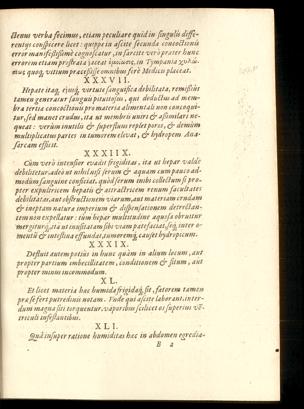 ctenus verba fecimus, etiam peculiare quid in singulis diffe-
rentijs conspicere licet: quippe in ascite secunda concoctionis
error manifestissimè cognoscitur, in sarcite verò præter hunc
errorem etiam prostrata iacet ὁμοίωσις, in Tympania
mus quoq; vitium præcessisse omnibus ferè Medicis placeat.
XXXVII.
Hepate itaq; eiusq; virtute sanguifica debilitata, remissius
tamen generatur sanguis pituitosus, qui deductus ad mem-
bra tertia concoctionis pro materia alimentali non concoqui-
tur, sed manet crudus, ita ut membris uniri & assimilari ne-
queat: verùm inutilis & superfluus replet poros, & demum
multiplicatus partes in tumorem elevat, & hydropem Ana-
sarcam efficit.
XXXIIX.
Cùm verò intensior evadit frigiditas, ita ut hepar valdè
debilitetur, adeò ut nihil nisi serum & aquam cum pauco ad-
modùm sanguine conficiat, quid serum inibi collectum si pro-
pter expultricem hepatis & attractricem renum facultates
debilitatas, aut obstructionem viarum, aut materiam crudam
& ineptam natura imperium & dispensationem detrectan-
tem non expellatur: tùm hepar multitudine aquosa obruitur
mergiturq;, ita ut inusitatam sibi viam patefaciat, seq; inter o-
mentū & intestina effundat, tumoremq; causet hydropicum.
XXXIX.
Destuit autem potiùs in hunc quàm in alium locum, aut
propter partium imbecillitatem, conditionem & situm, aut
propter minus incommodum.
XL.
Et licet materia hæc humida frigidaq; sit, fatorem tamen
præ se fert putredinis notam. Unde qui ascite laborant, inter-
dum magna siti torquentur, vaporibus scilicet os superius vē-
triculi infestantibus.
XLI.
Quâ insuper ratione humiditas hæc in abdomen egredia-
B 2